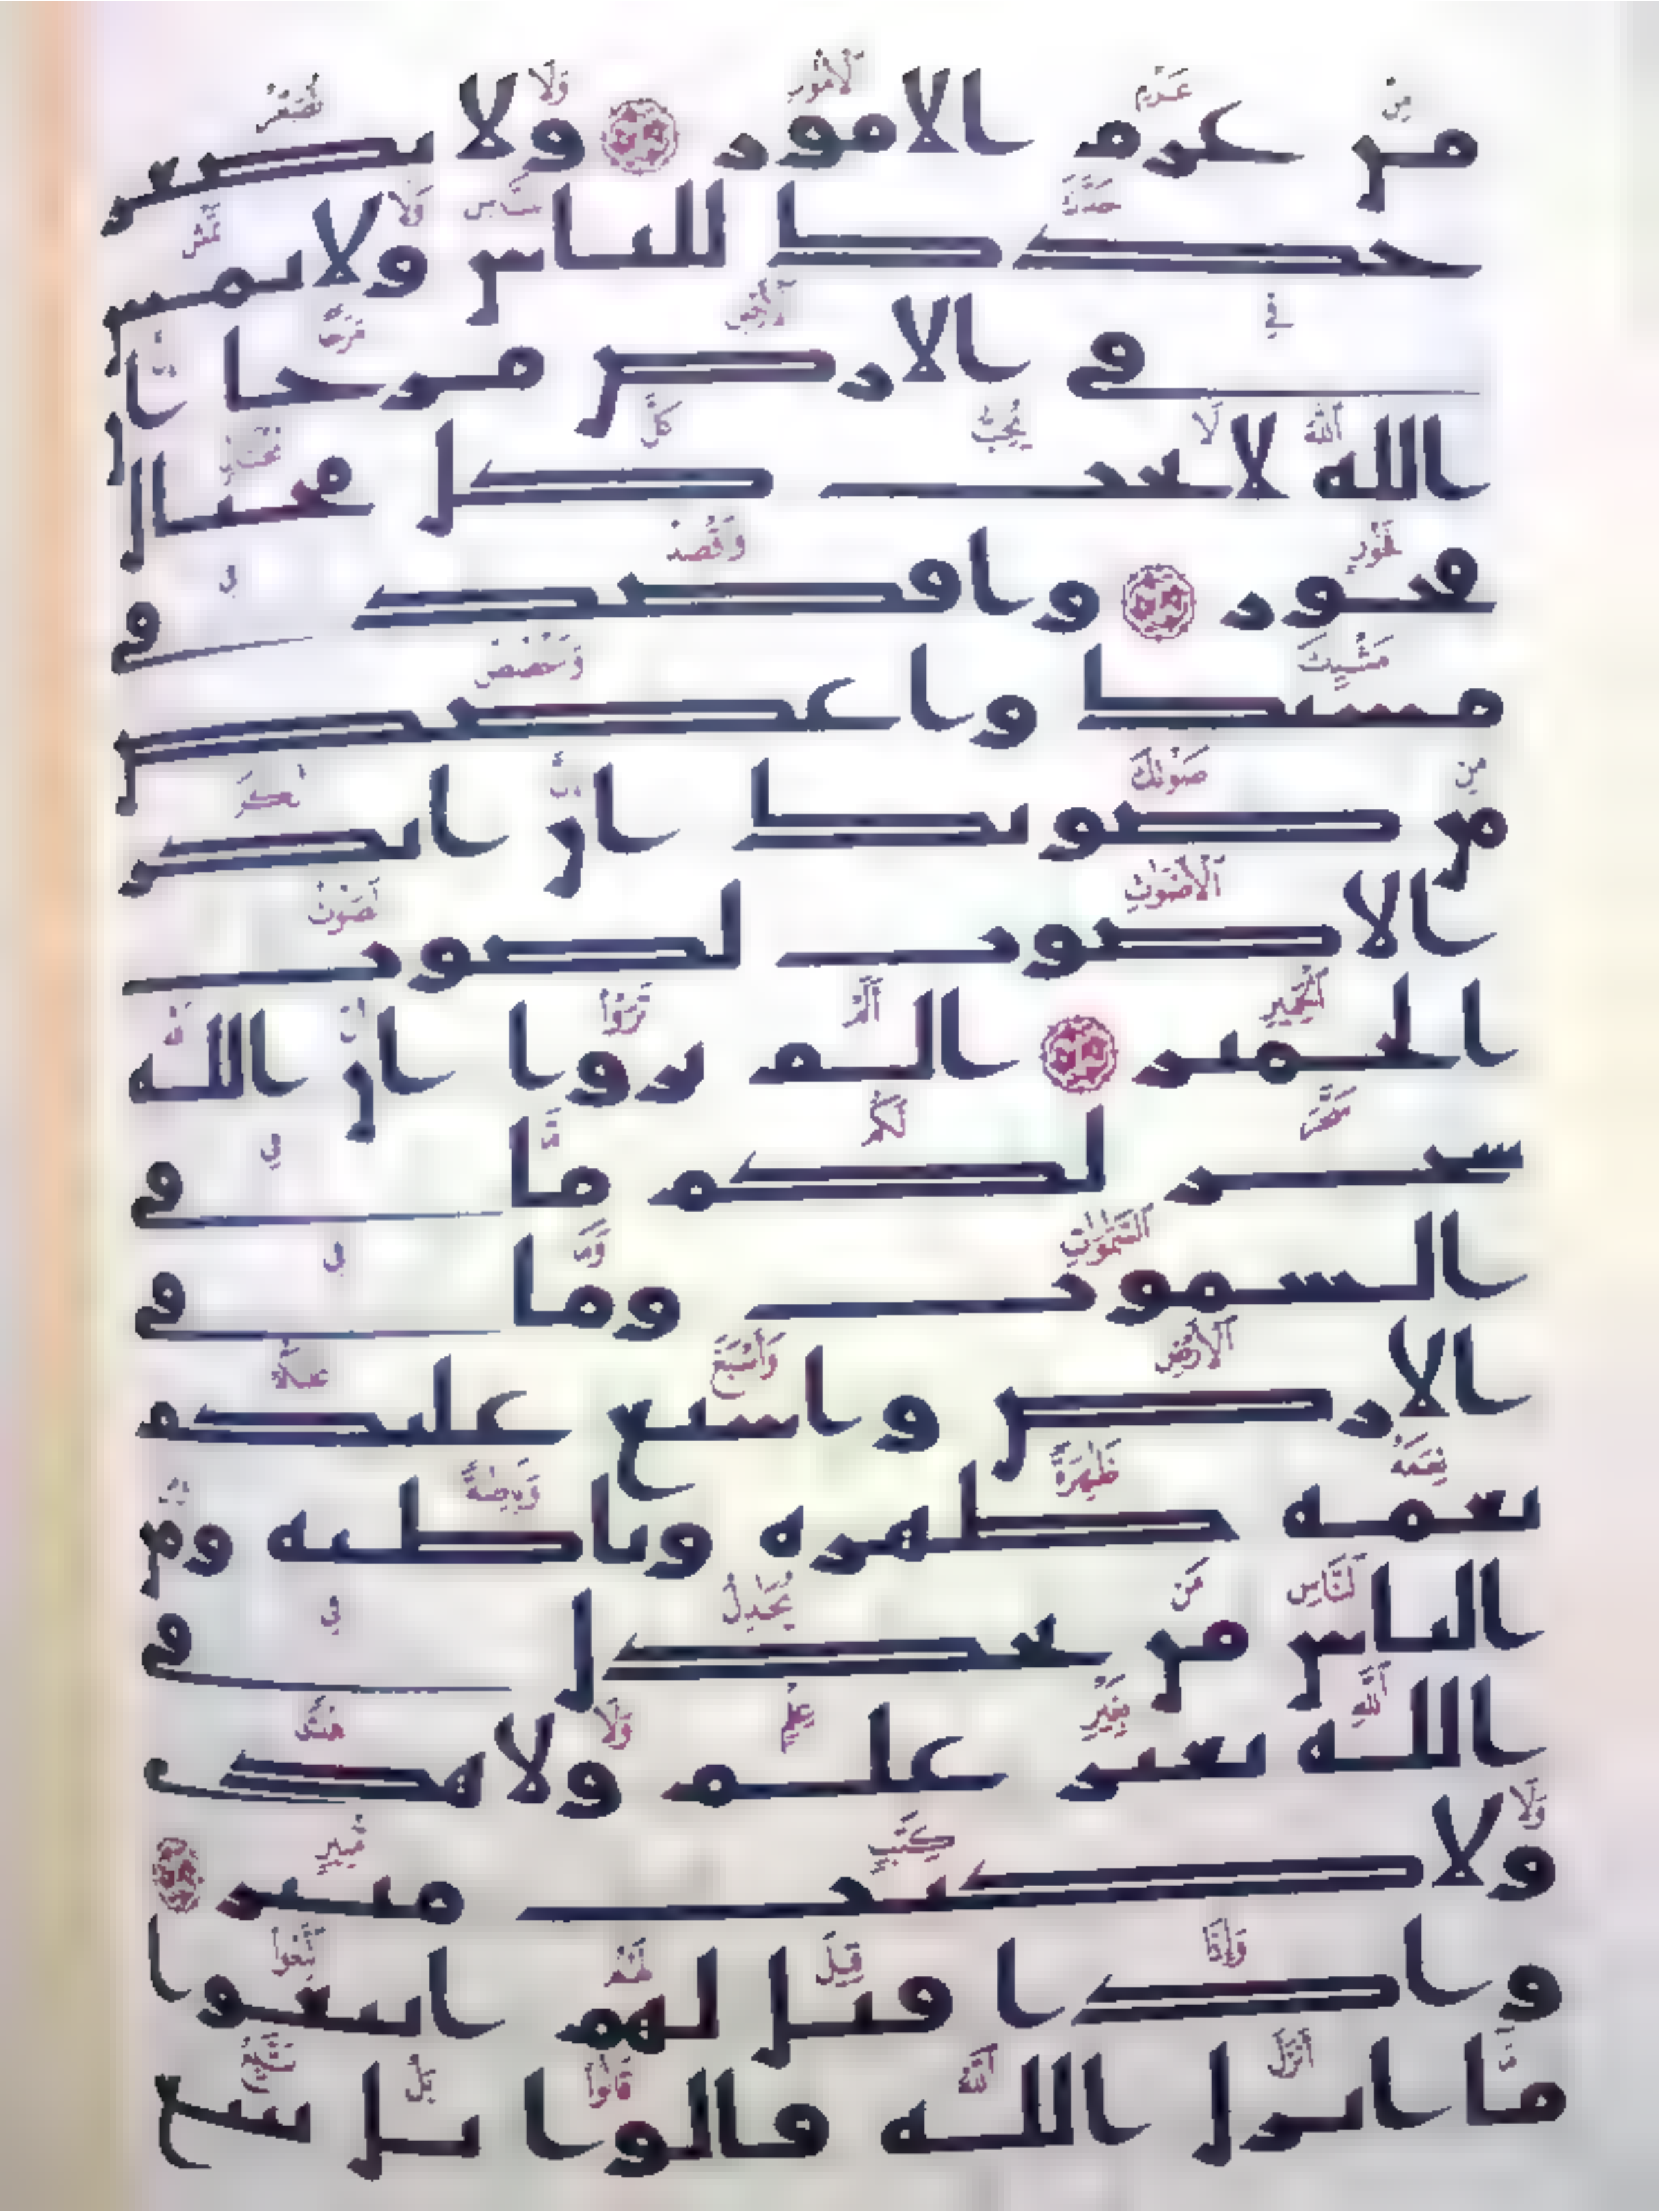 من عزم الامور ولا تصعر
خدك للناس ولا تمش
في الارض مرحا ان
الله لا يحب كل مختال
فخور واقصد في
مشيك واغضض
من صوتك ان انكر
الاصوت لصوت
الحمير الم تروا ان الله
سخر لكم ما في
السموت وما في
الارض واسبغ عليكم
نعمه ظهره وباطنه ومن
الناس من يجدل في
الله بغير علم ولا هدى
ولا كتب منير
واذا قيل لهم اتبعوا
ما انزل الله قالوا بل نتبع